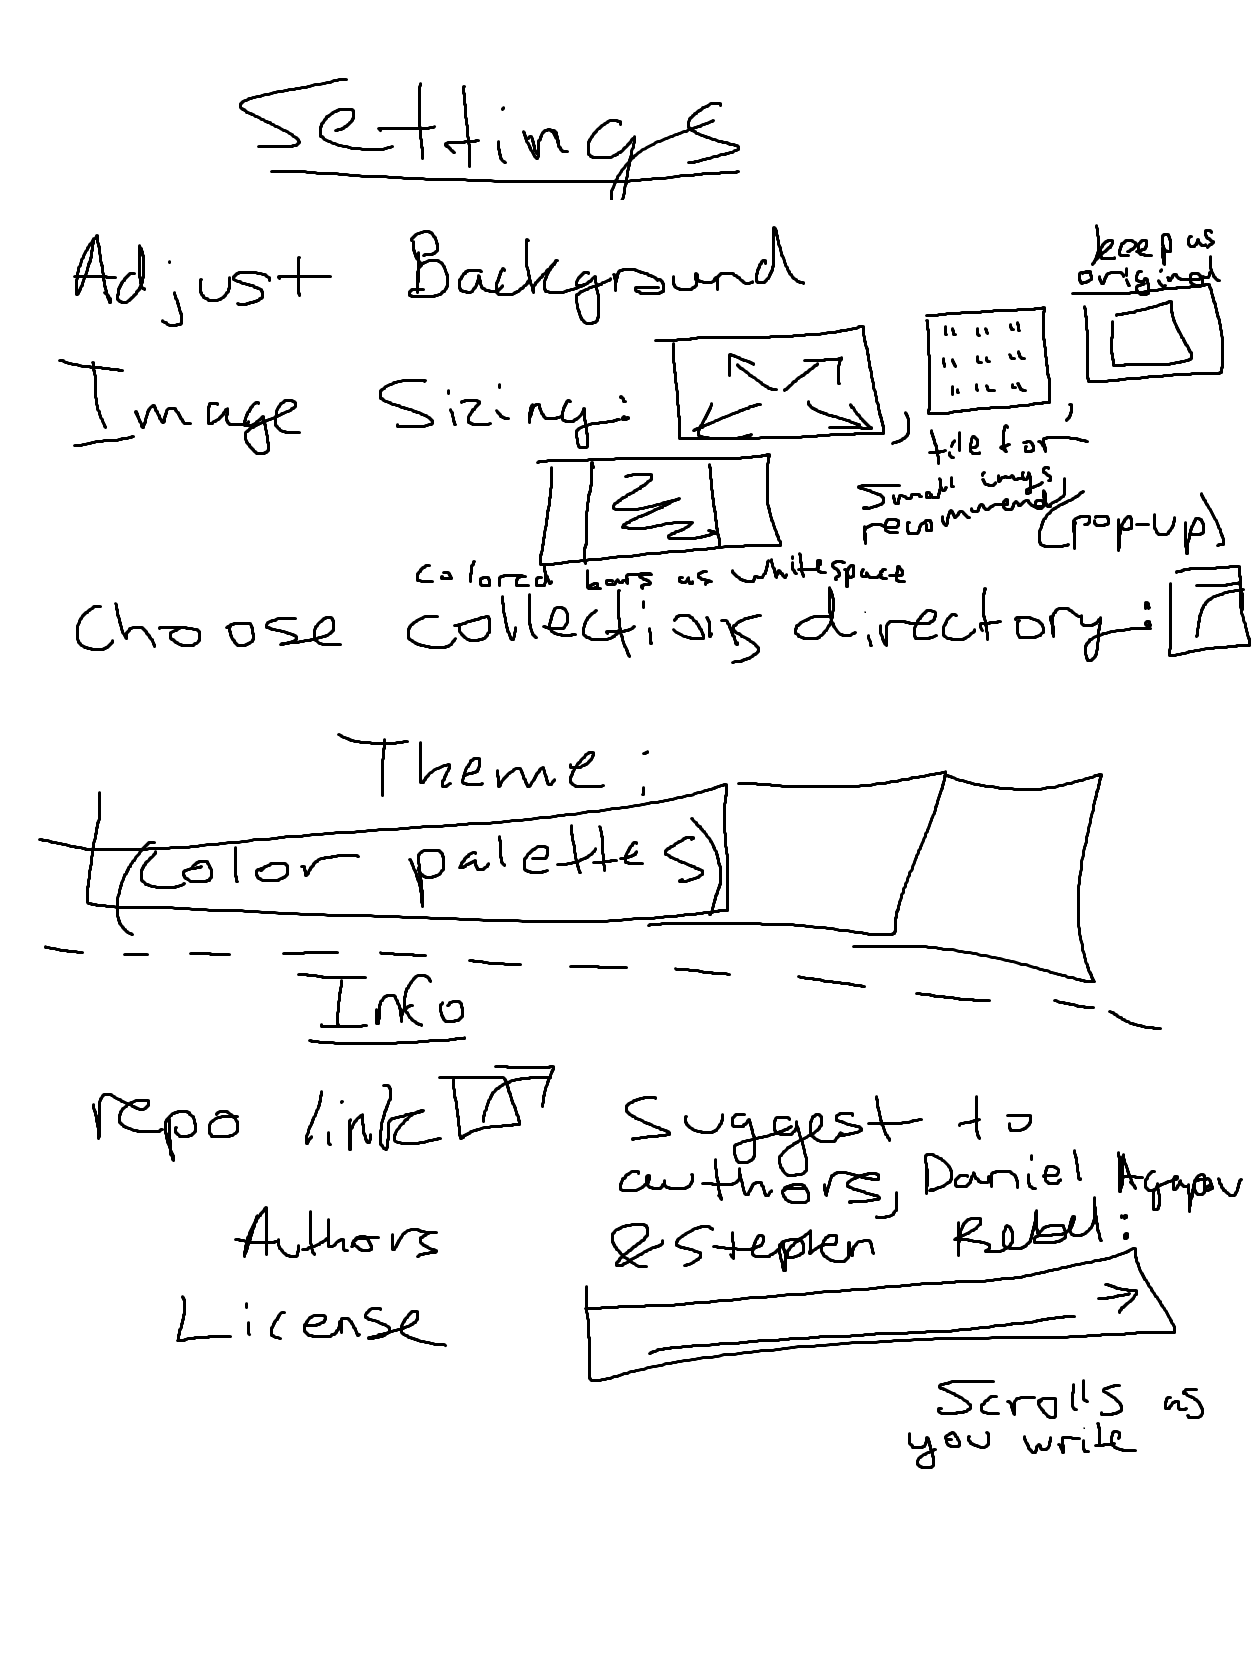 Settings
Adjust Background
keep as
original
Image Sizing:
, ,
tile for
small imgs,
recommend
(pop-up)
colored bars as whitespace
choose collections directory:
Theme:
(color palettes)
Info
repo link
Suggest to
authors, Daniel Agapov
& Stephen :
Authors
License
Scrolls as
you write